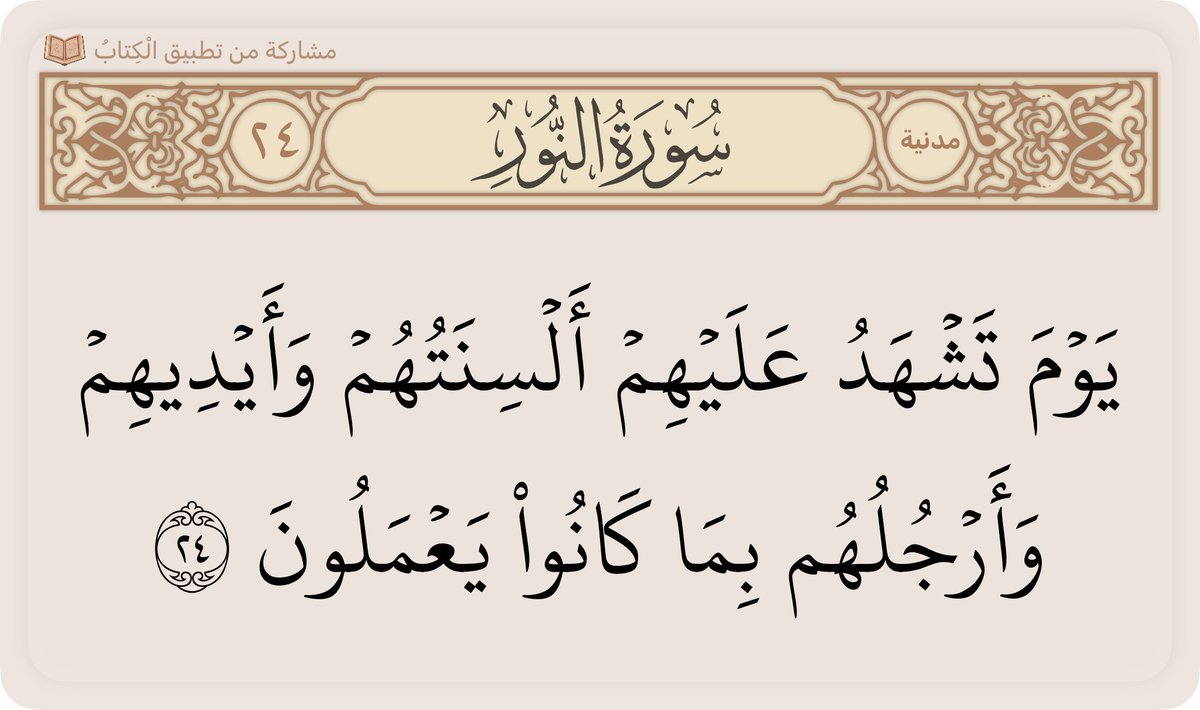 مشاركة من تطبيق الْكِتابُ
مدنية
سُورَةُ النُّورِ
٢٤
يَوۡمَ تَشۡهَدُ عَلَيۡهِمۡ أَلۡسِنَتُهُمۡ وَأَيۡدِيهِمۡ
وَأَرۡجُلُهُم بِمَا كَانُواْ يَعۡمَلُونَ ٢٤